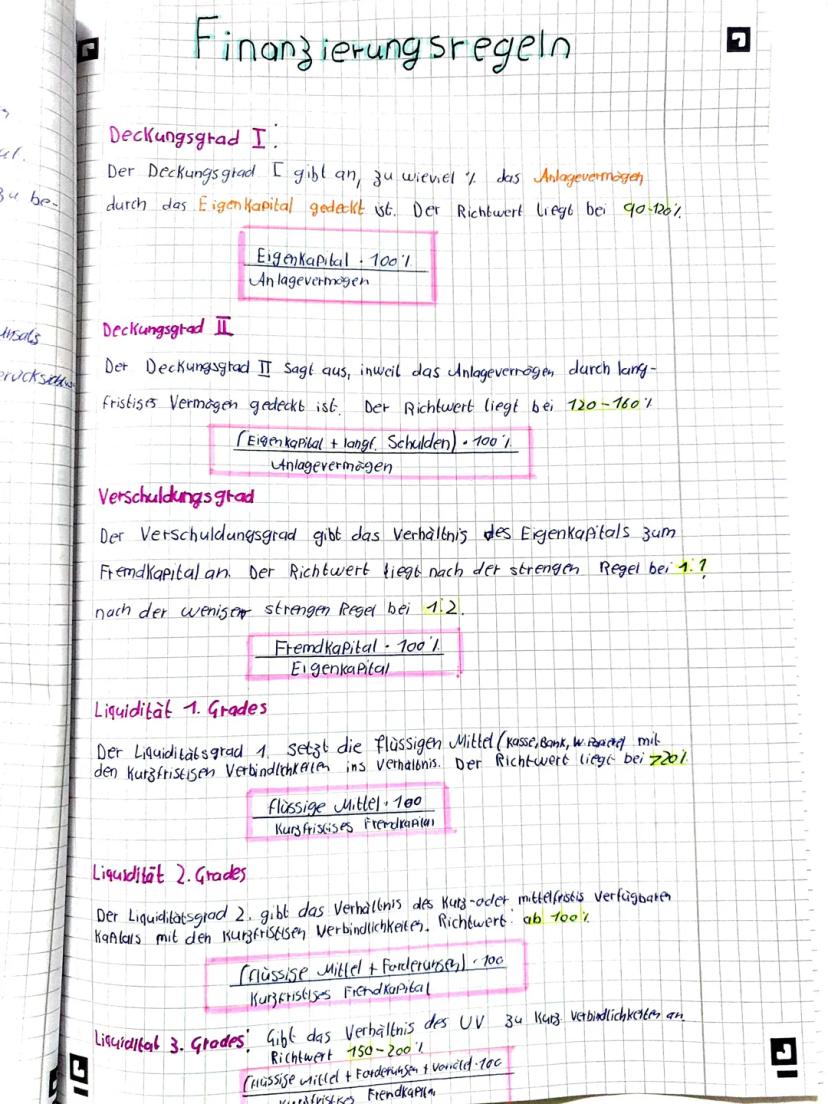 Finanzierungsregeln
ul.
zu be-
Deckungsgrad I:
Der Deckungsgrad I gibt an, zu wieviel % das Anlagevermögen
durch das Eigenkapital gedeckt ist. Der Richtwert liegt bei 90-120%
Eigenkapital · 100%
Anlagevermögen
Deckungsgrad II
Der Deckungsgrad II sagt aus, inweit das Anlagevermögen durch lang-
fristiges Vermögen gedeckt ist. Der Richtwert liegt bei 120-160%
(Eigenkapital + langf. Schulden) · 100%
Anlagevermögen
Verschuldungsgrad
Der Verschuldungsgrad gibt das Verhältnis des Eigenkapitals zum
Fremdkapital an. Der Richtwert liegt nach der strengen Regel bei 1:1
nach der weniger strengen Regel bei 1:2.
Fremdkapital · 100%
Eigenkapital
Liquidität 1. Grades
Der Liquiditätsgrad 1. setzt die flüssigen Mittel (Kasse, Bank, W. mit
den kurzfristigen Verbindlichkeiten ins Verhältnis. Der Richtwert liegt bei >20%
flüssige Mittel · 100
Kurzfristiges Fremdkapital
Liquidität 2. Grades
Der Liquiditätsgrad 2. gibt das Verhältnis des kurz- oder mittelfristig verfügbaren
Kapitals mit den kurzfristigen Verbindlichkeiten. Richtwert: ab 100%
(flüssige Mittel + Forderungen) · 100
Kurzfristiges Fremdkapital
Liquidität 3. Grades: Gibt das Verhältnis des UV zu kurz. Verbindlichkeiten an.
Richtwert 150-200%
(flüssige Mittel + Forderungen + Vorräte) · 100
Kurzfristiges Fremdkapital